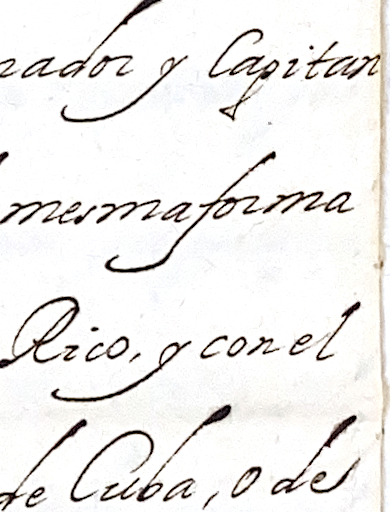 nador y Capitan
mesma forma
Rico, y con el
de Cuba, o des